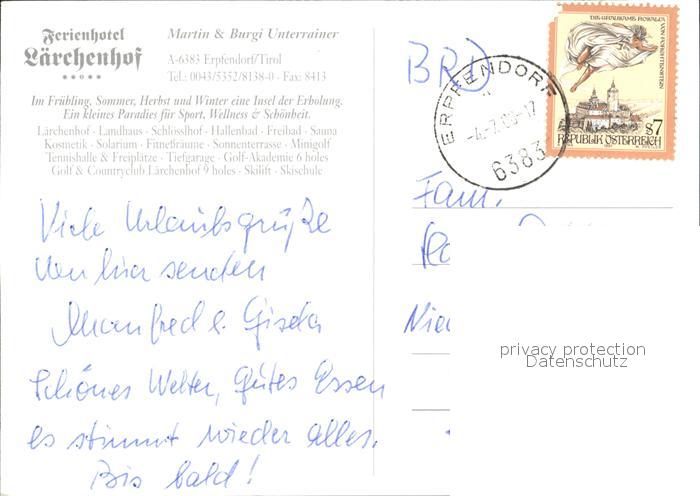 Ferienhotel
Lärchenhof
Martin & Burgi Unterrainer
A-6383 Erpfendorf/Tirol
Tel.: 0043/5352/8138-0 · Fax: 8413
Im Frühling, Sommer, Herbst und Winter eine Insel der Erholung.
Ein kleines Paradies für Sport, Wellness & Schönheit.
Lärchenhof · Landhaus · Schlösslhof · Hallenbad · Freibad · Sauna
Kosmetik · Solarium · Fitneßräume · Sonnenterrasse · Minigolf
Tennishalle & Freiplätze · Tiefgarage · Golf-Akademie 6 holes
Golf & Countryclub Lärchenhof 9 holes · Skilift · Skischule
Viele Urlaubsgrüße
von hier senden
Manfred u. Gisela
Schönes Wetter, Gutes Essen
es stimmt wieder alles.
Bis bald!
BRD
ERPFENDORF
6383
DIE GRAUSAME ROSALIA
VON FORCHTENSTEIN
S7
REPUBLIK ÖSTERREICH
Fam.
privacy protection
Datenschutz